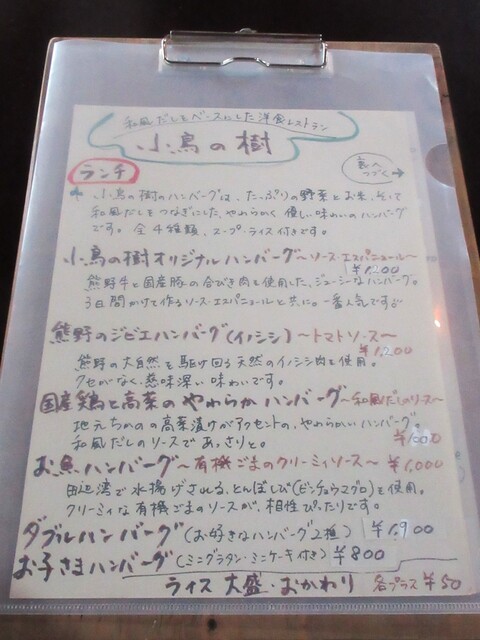 和風だしをベースにした洋食レストラン
小鳥の樹
ランチ
裏へつづく→
小鳥の樹のハンバーグは、たっぷりの野菜とお米、そして
和風だしをつなぎにした、やわらかく優しい味わいのハンバーグ
です。全4種類、スープ・ライス付きです。
小鳥の樹オリジナルハンバーグ〜ソース・エスパニョール〜
¥1,200
熊野牛と国産豚の合びき肉を使用した、ジューシーなハンバーグ。
3日間かけて作るソース・エスパニョールと共に。一番人気です
熊野のジビエハンバーグ(イノシシ)〜トマトソース〜
¥1,200
熊野の大自然を駆け回る天然のイノシシ肉を使用。
クセがなく、慈味深い味わいです。
国産鶏と高菜のやわらかハンバーグ〜和風だしのソース〜
地元ちめのの高菜漬けがアクセントの、やわらかいハンバーグ。
和風だしのソースであっさりと。
¥1000
お魚ハンバーグ〜有機ごまのクリーミィソース〜 ¥1,000
田辺湾で水揚げされる、とんぼしび(ビンチョウマグロ)を使用。
クリーミィな有機ごまのソースが、相性ぴったりです。
ダブルハンバーグ(お好きなハンバーグ2種) ¥1,900
お子さまハンバーグ(ミニグラタン・ミニケーキ付き) ¥800
ライス 大盛・おかわり 各プラス ¥50